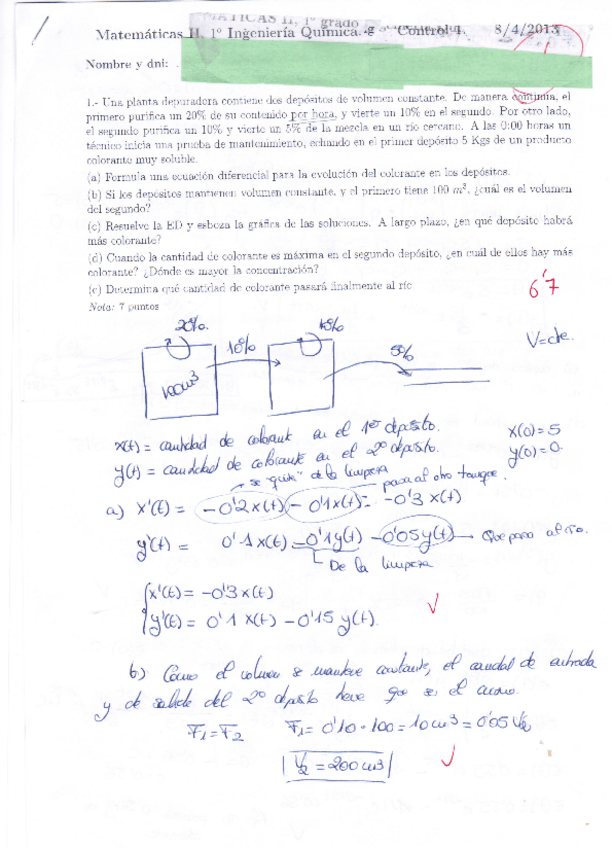 MATICAS II, 1º grado
Matemáticas II, 1º Ingeniería Química. Control 1. 8/4/2013
Nombre y dni:
1.- Una planta depuradora contiene dos depósitos de volumen constante. De manera continua, el
primero purifica un 20% de su contenido por hora, y vierte un 10% en el segundo. Por otro lado,
el segundo purifica un 10% y vierte un 5% de la mezcla en un río cercano. A las 0:00 horas un
técnico inicia una prueba de mantenimiento, echando en el primer depósito 5 Kgs de un producto
colorante muy soluble.
(a) Formula una ecuación diferencial para la evolución del colorante en los depósitos.
(b) Si los depósitos mantienen volumen constante, y el primero tiene 100 m³, ¿cuál es el volumen
del segundo?
(c) Resuelve la ED y esboza la gráfica de las soluciones. A largo plazo, ¿en qué depósito habrá
más colorante?
(d) Cuando la cantidad de colorante es máxima en el segundo depósito, ¿en cuál de ellos hay más
colorante? ¿Dónde es mayor la concentración?
(e) Determina qué cantidad de colorante pasará finalmente al río
Nota: 7 puntos
6'7
20%. 10% 10% 5% V=cte.
100m³
x(t) = cantidad de colorante en el 1er depósito. x(0)=5
y(t) = cantidad de colorante en el 2º depósito. y(0)=0
se "quita" de la limpieza pasa al otro tanque.
a) x'(t) = -0'2x(t) - 0'1x(t) = -0'3 x(t)
y'(t) = 0'1 x(t) - 0'1y(t) - 0'05y(t) → Que pasa al río.
De la limpieza
x'(t) = -0'3 x(t)
y'(t) = 0'1 x(t) - 0'15 y(t).
b) Como el volumen se mantiene constante, el caudal de entrada
y de salida del 2º depósito tiene que ser el mismo.
F₁ = F₂ F₁ = 0'10 · 100 = 10 m³ = 0'05 V₂
V₂ = 200 m³